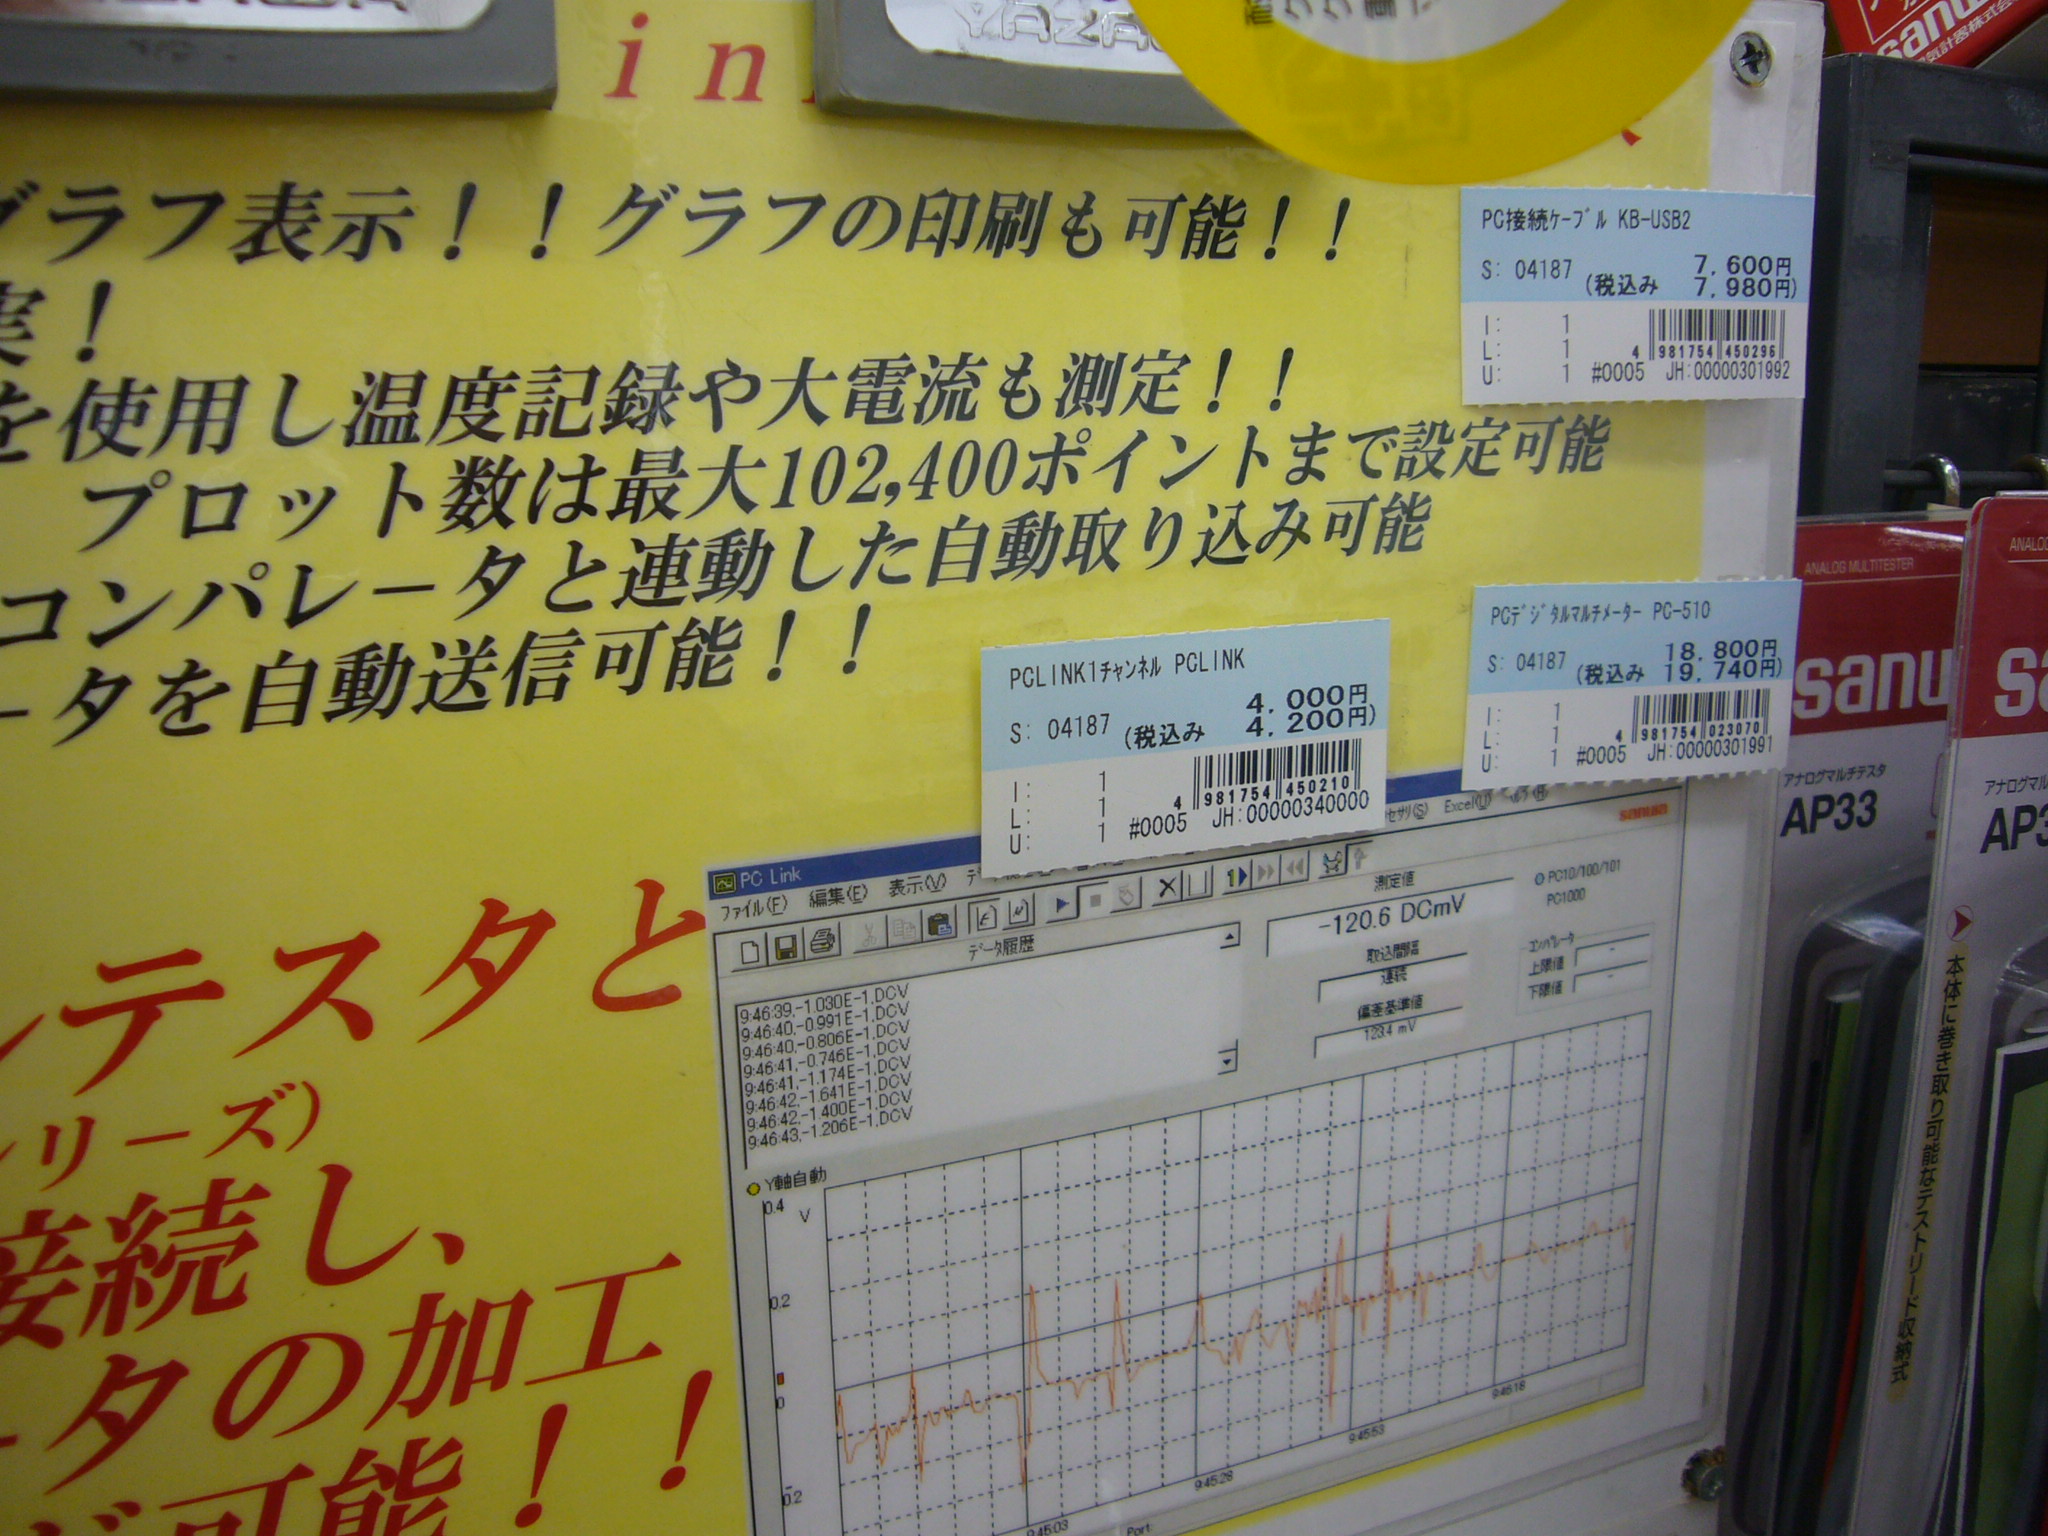 グラフ表示！！グラフの印刷も可能！！
実！
を使用し温度記録や大電流も測定！！
プロット数は最大102,400ポイントまで設定可能
コンパレータと連動した自動取り込み可能
ータを自動送信可能！！
テスタと
リーズ)
接続し、
タの加工
可能！！
PC接続ｹｰﾌﾞﾙ KB-USB2
S: 04187 7,600円
(税込み 7,980円)
I: 1
L: 1
U: 1
4 981754 450296
#0005 JH:00000301992
PCﾃﾞｼﾞﾀﾙﾏﾙﾁﾒｰﾀｰ PC-510
S: 04187 18,800円
(税込み 19,740円)
I: 1
L: 1
U: 1
4 981754 023070
#0005 JH:00000301991
PCLINK1ﾁｬﾝﾈﾙ PCLINK
S: 04187 4,000円
(税込み 4,200円)
I: 1
L: 1
U: 1
4 981754 450210
#0005 JH:00000340000
PC Link
ファイル(F) 編集(E) 表示(V)
Excel(L)
sanwa
データ履歴
9:46:39,-1.030E-1,DCV
9:46:40,-0.991E-1,DCV
9:46:40,-0.806E-1,DCV
9:46:41,-0.746E-1,DCV
9:46:41,-1.174E-1,DCV
9:46:42,-1.641E-1,DCV
9:46:42,-1.400E-1,DCV
9:46:43,-1.206E-1,DCV
測定値
-120.6 DCmV
取込間隔
連続
偏差基準値
123.4 mV
PC10/100/101
PC1000
コンパレータ
上限値 -
下限値 -
Y軸自動
0.4
V
0.2
0
-0.2
9:45:03
9:45:28
9:45:53
9:46:18
Port:
ANALOG MULTITESTER
sanw
アナログマルチテスタ
AP33
本体に巻き取り可能なテストリード収納式